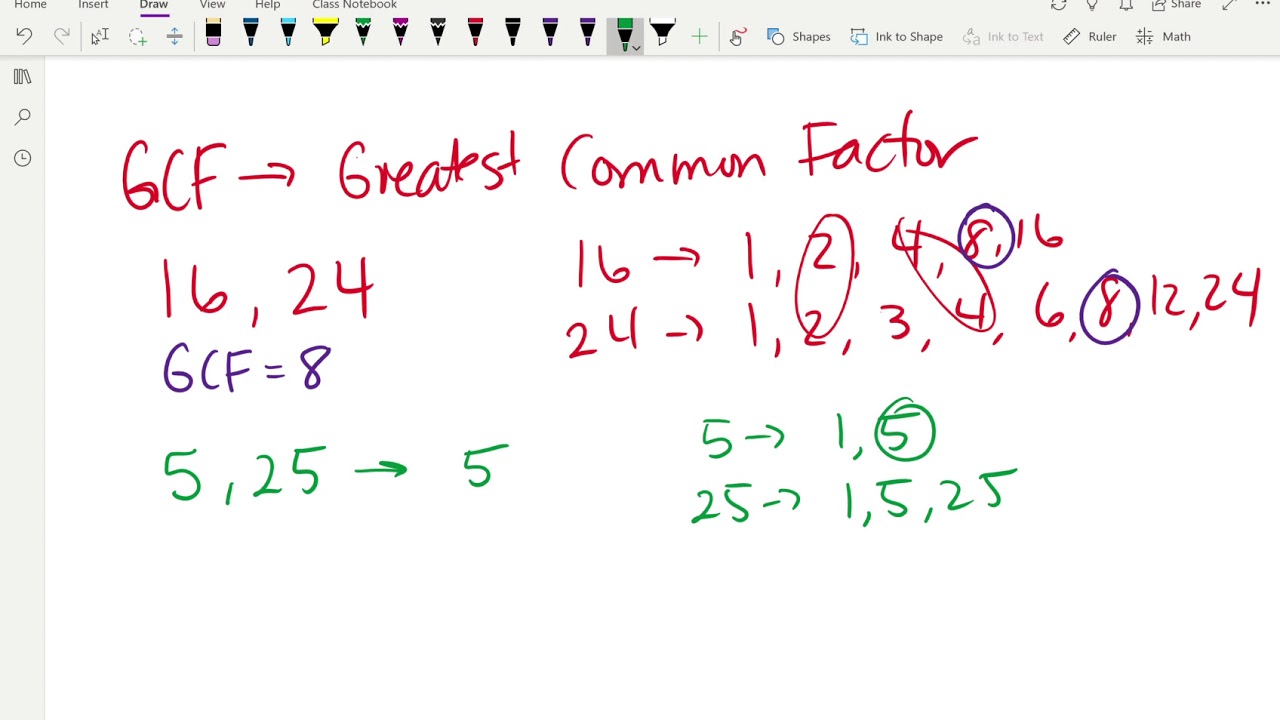 Home Insert Draw View Help Class Notebook Share
Shapes Ink to Shape Ink to Text Ruler Math
GCF → Greatest Common Factor
16, 24
GCF = 8
16 → 1, 2, 4, 8, 16
24 → 1, 2, 3, 4, 6, 8, 12, 24
5, 25 → 5
5 → 1, 5
25 → 1, 5, 25